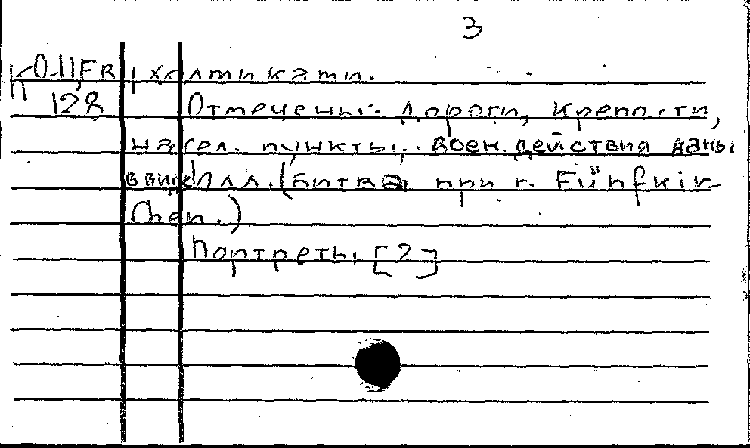 3
К 0.11,FR
128
Отмечены: дороги, крепости,
насел. пункты. Воен. действия даны
в виде илл. (Битва при г. Fünfkir-
chen.)
Портреты [2]